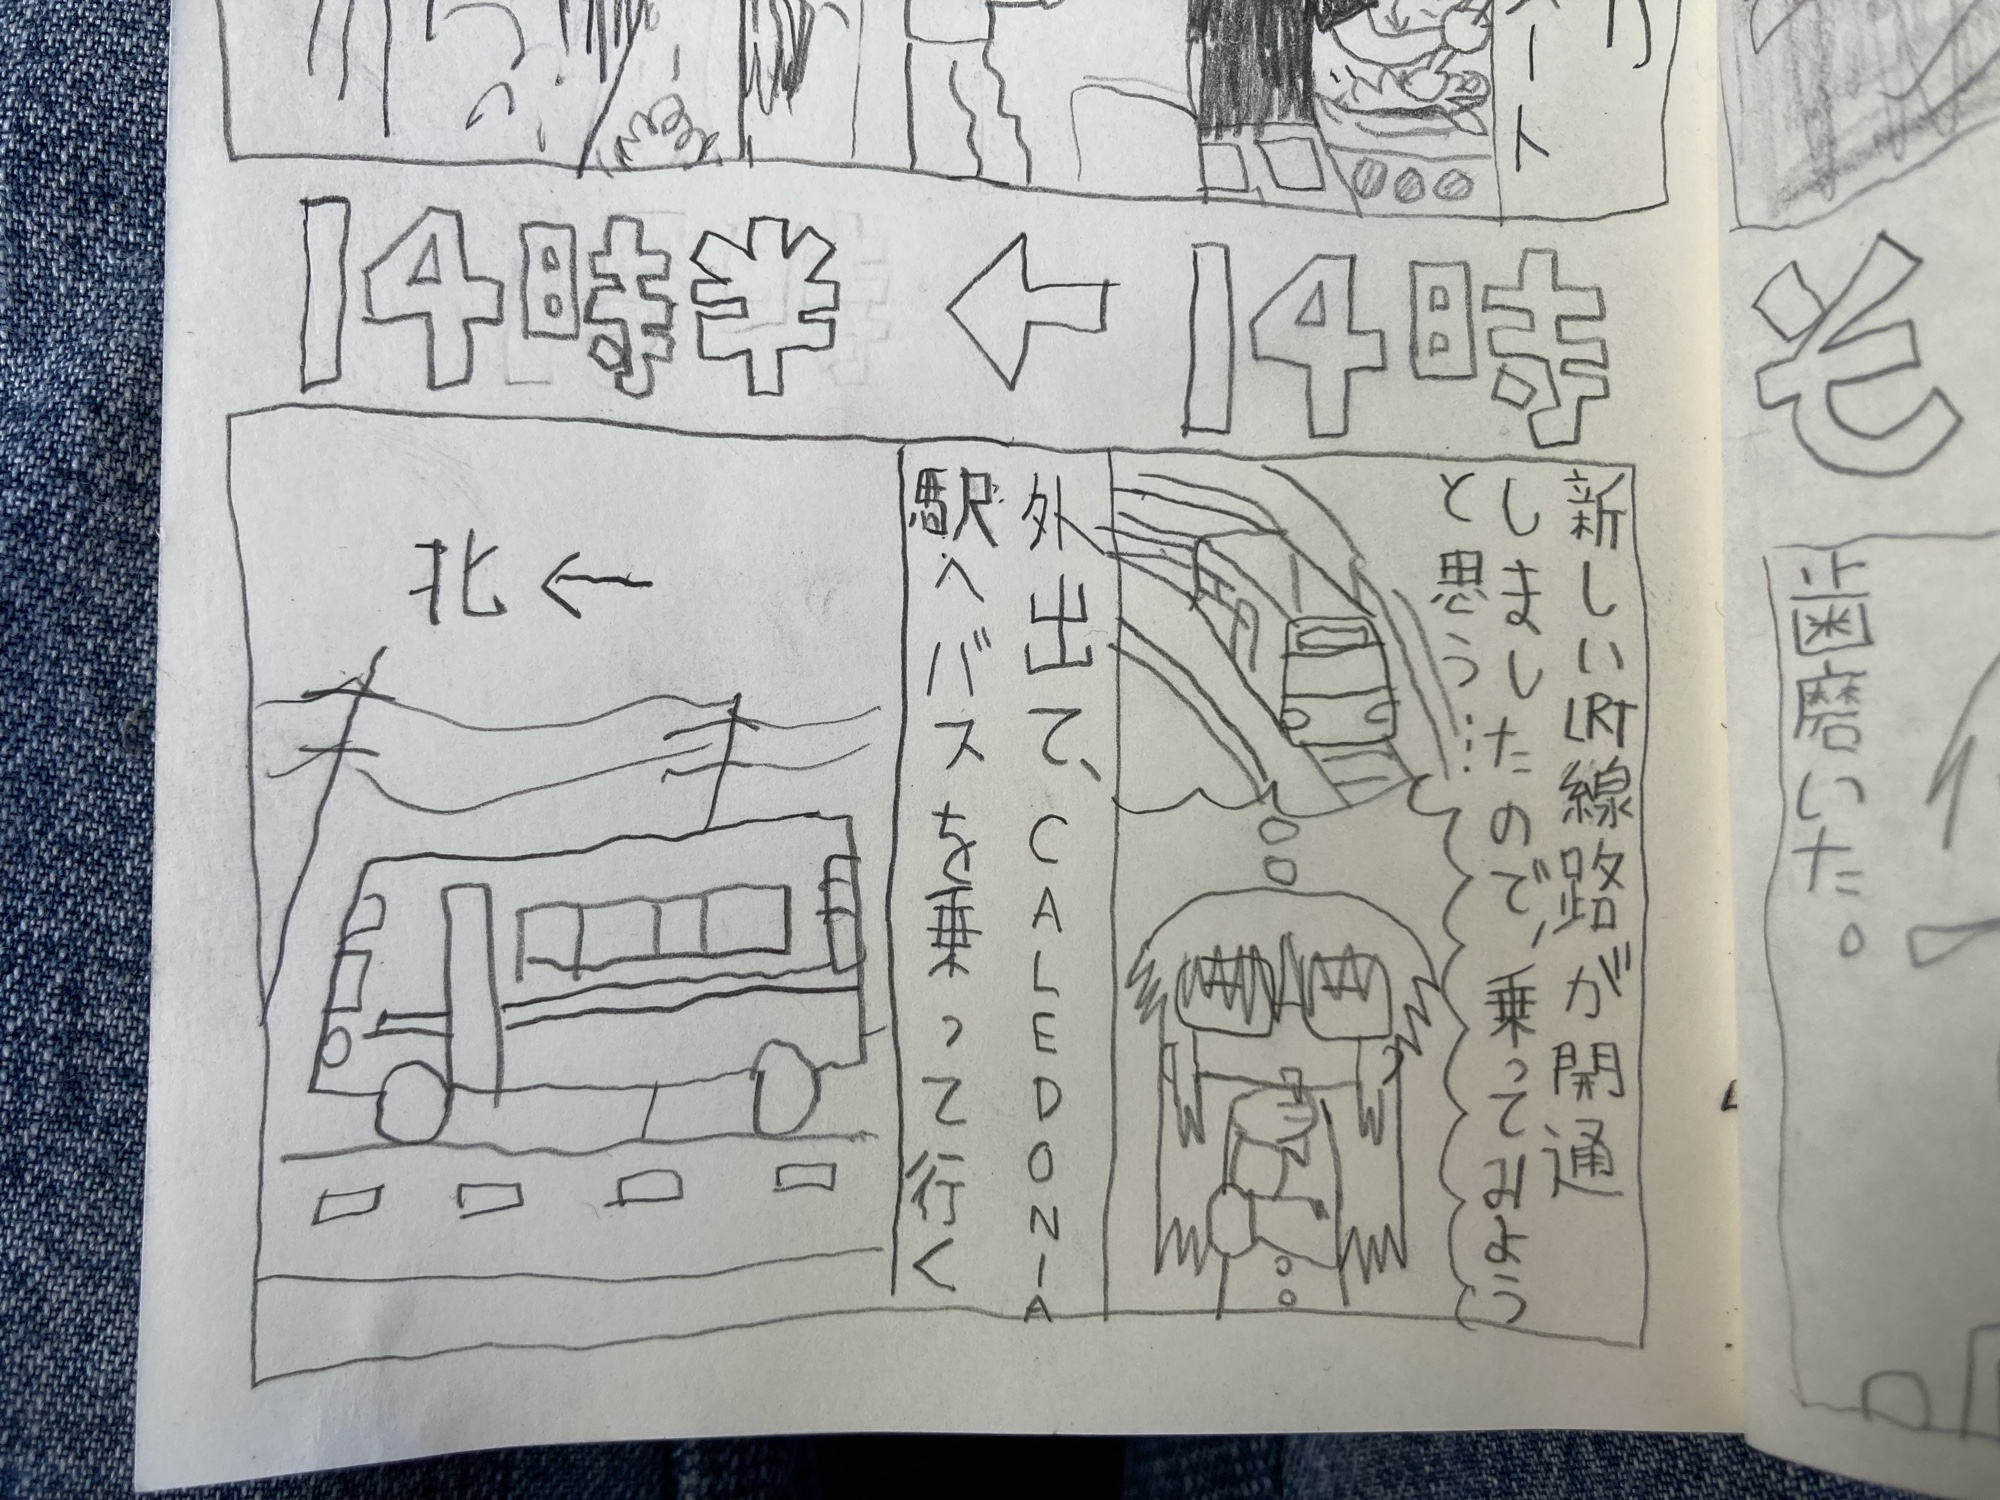 ート
14時
14時半
新しいLRT線路が開通
しましたので、乗ってみよう
と思う…
外出て、CALEDONIA
駅へバスを乗って行く
←北
歯磨いた。